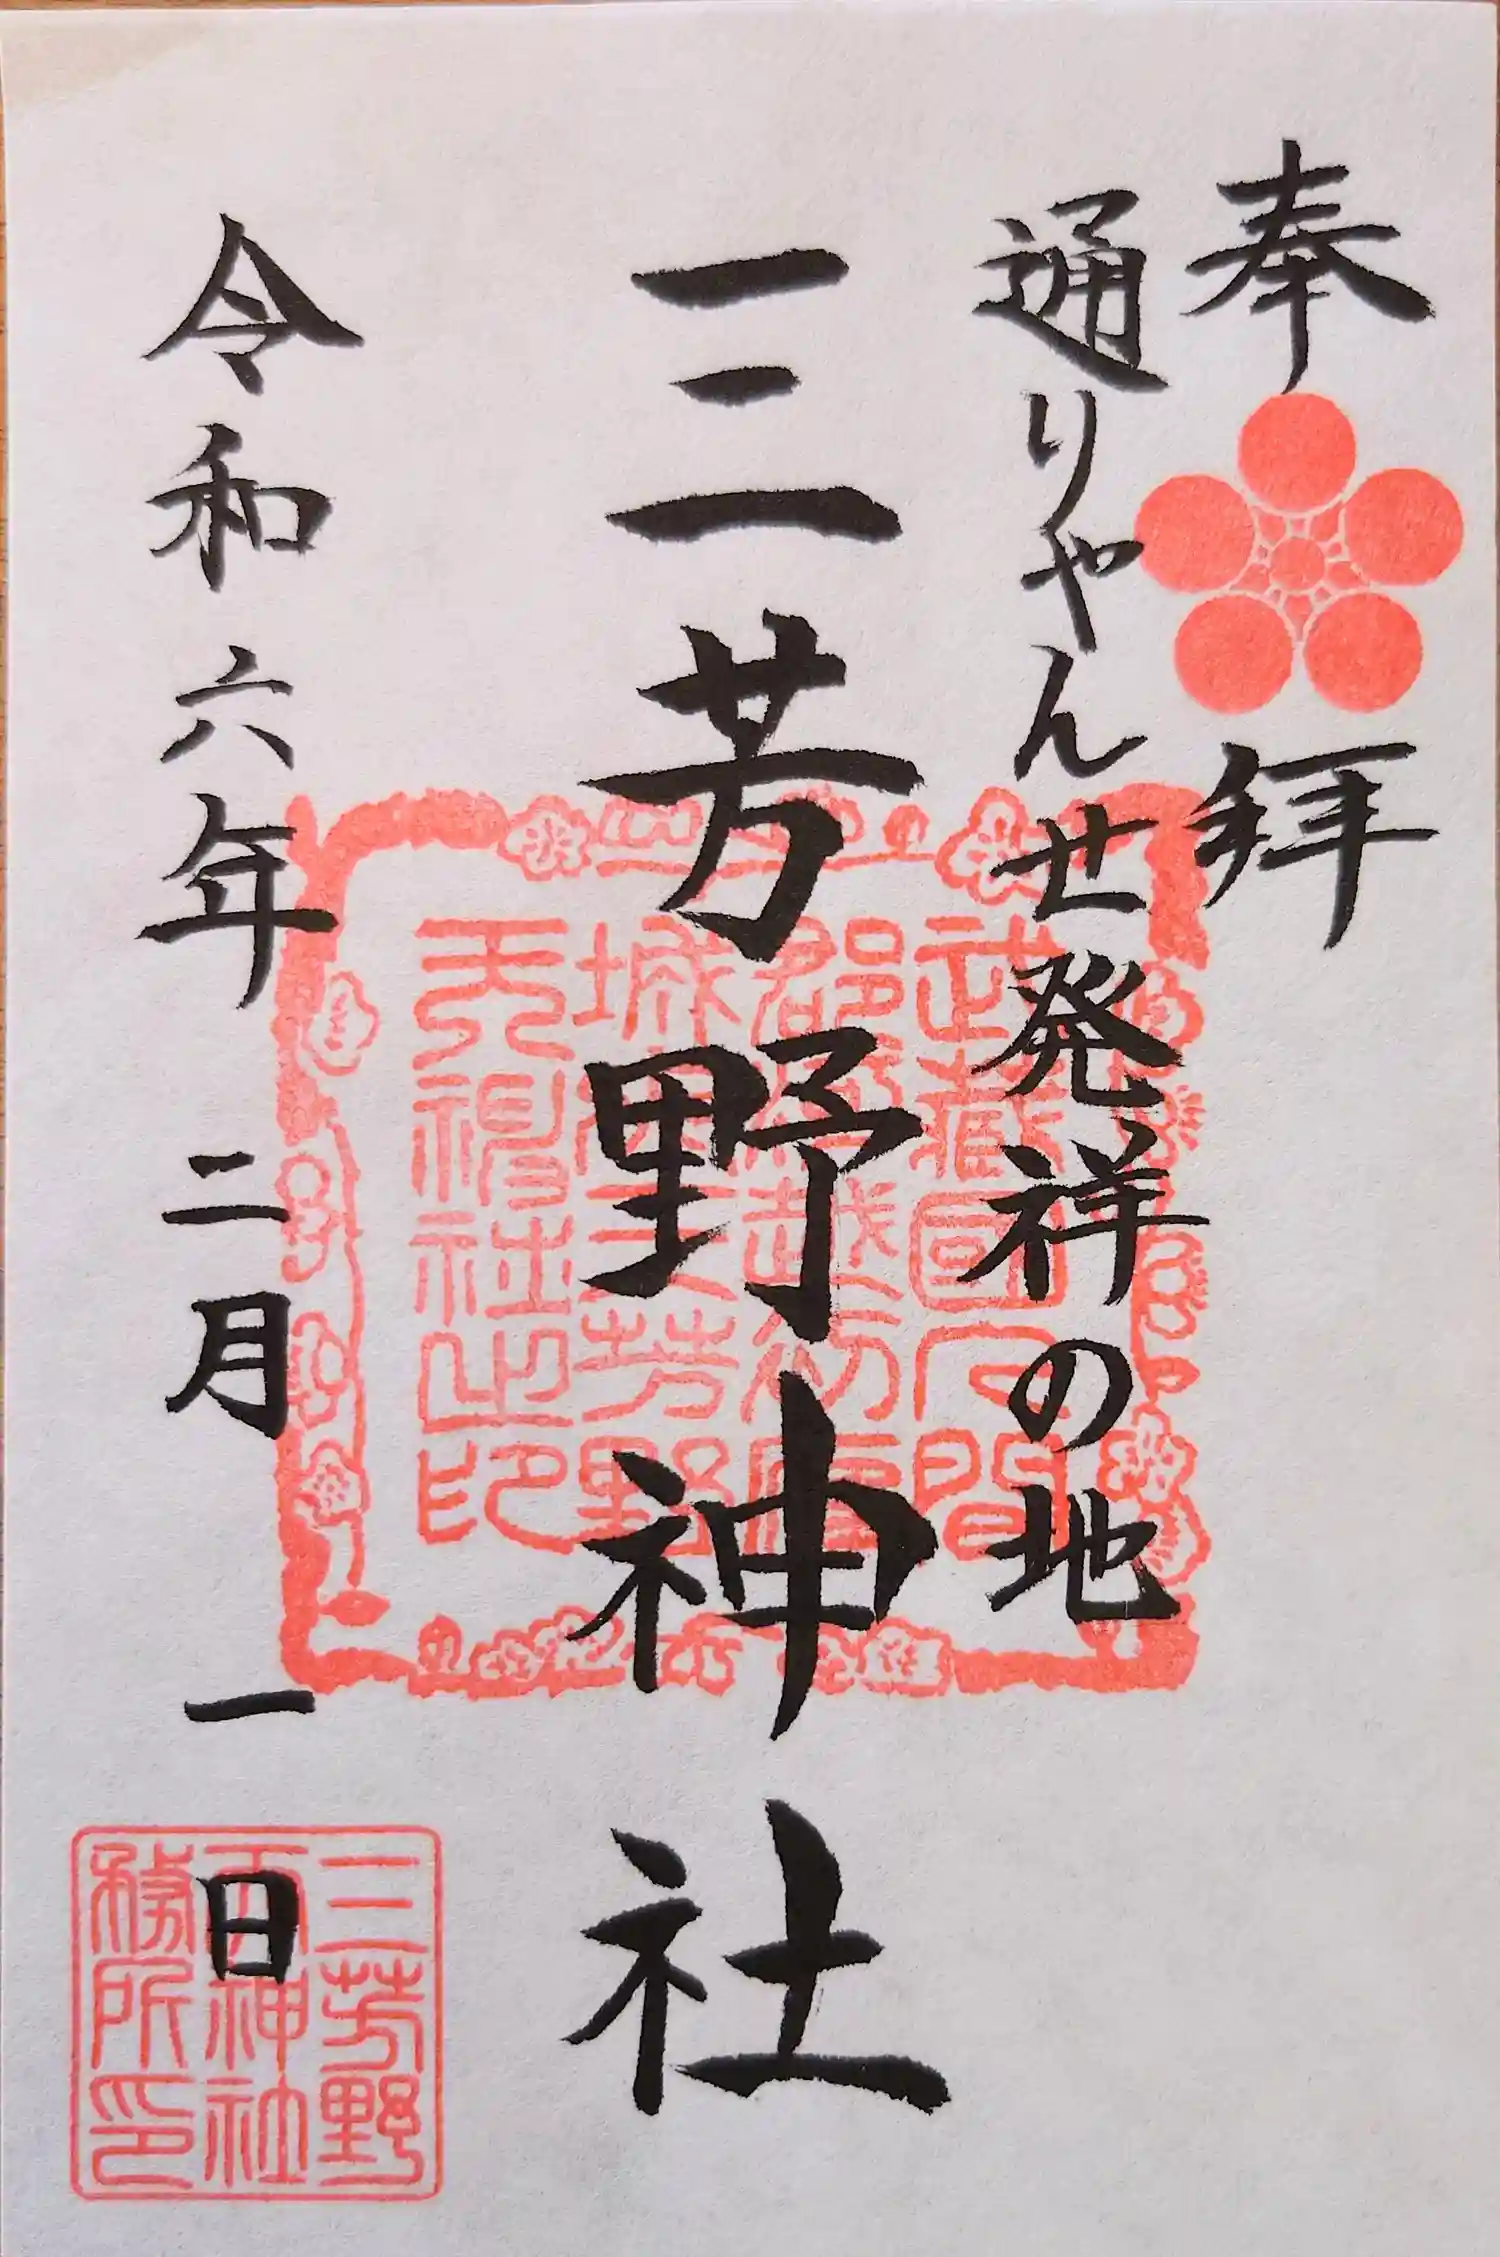 奉拝
通りゃんせ発祥の地
三芳野神社
令和六年二月一日
武蔵國入間
郡河越初雁
城内三芳野
天神社之印
三芳野
天神社
務所印